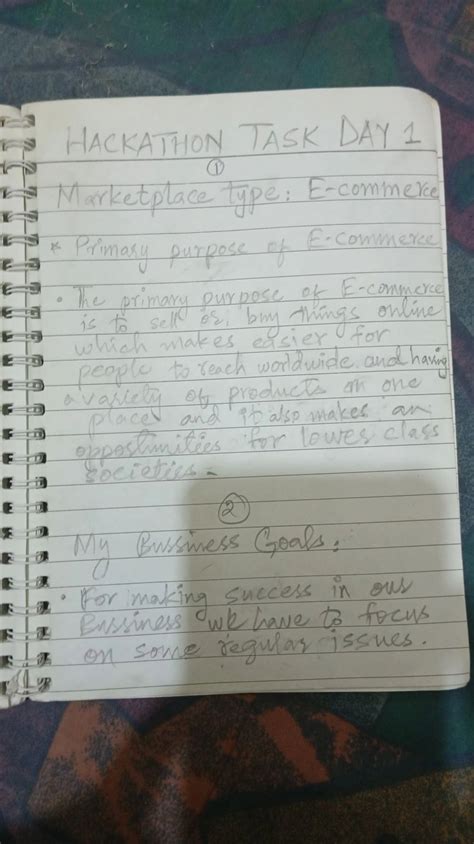 HACKATHON TASK DAY 1
①
Marketplace type: E-commerce
* Primary purpose of E-commerce
• The primary purpose of E-commerce
is to sell or, buy things online
which makes easier for
people to reach worldwide and having
a variety of products on one
place and it also makes an
oppostunities for lower class
societies.
②
My Bussiness Goals:
• For making success in our
Bussiness we have to focus
on some regular issues.